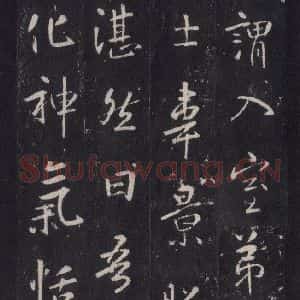 謂入室弟
士韋景昭
湛然曰吾
化神氣恬
Shufawang.CN